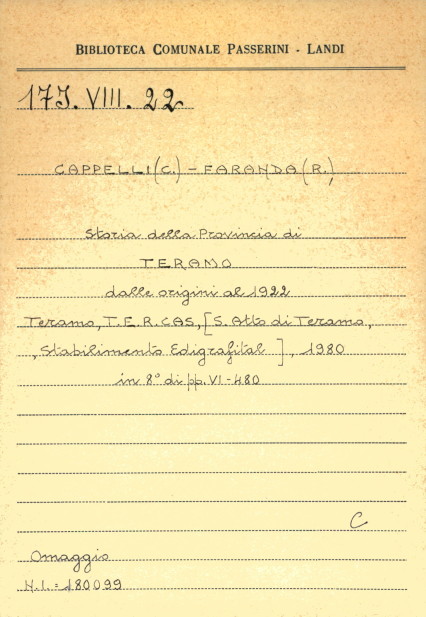 BIBLIOTECA COMUNALE PASSERINI - LANDI
17J. VIII. 22
CAPPELLI (C.) - FARANDA (R.)
Storia della Provincia di
TERAMO
dalle origini al 1922
Teramo, T.E.R.CAS, [S. Atto di Teramo,
, Stabilimento Edigrafital ], 1980
in 8° di pp. VI-480
C
Omaggio
N.I. = 180099